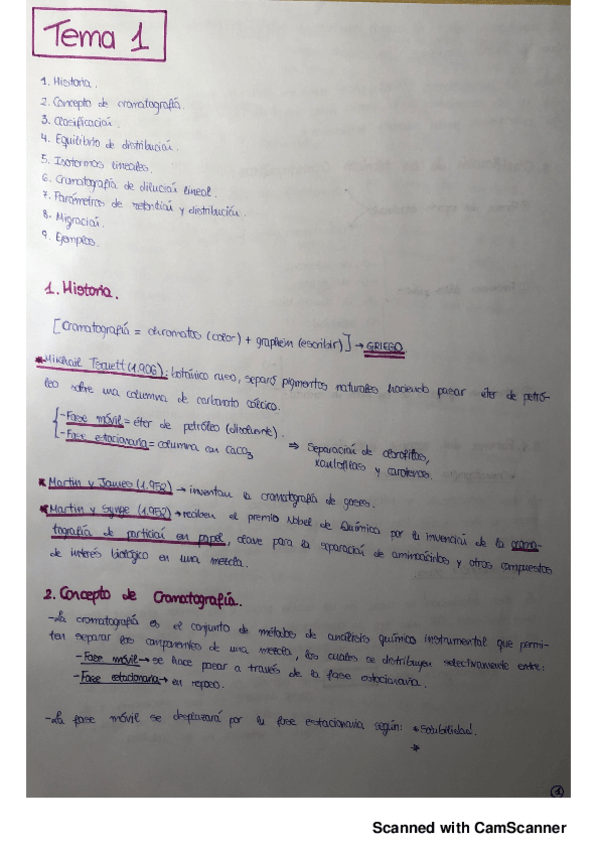 Tema 1
1. Historia.
2. Concepto de cromatografía.
3. Clasificación.
4. Equilibrio de distribución.
5. Isotermas lineales.
6. Cromatografía de dilución lineal.
7. Parámetros de retención y distribución.
8. Migración.
9. Ejemplos.
1. Historia.
[Cromatografía = chromatos (color) + graphein (escribir)] → GRIEGO
*Mikhail Tswett (1.906): botánico ruso, separó pigmentos naturales haciendo pasar éter de petró-
leo sobre una columna de carbonato cálcico.
-Fase móvil = éter de petróleo (disolvente).
-Fase estacionaria = columna con CaCO3
⇒ Separación de clorofilas,
xantofilas y carotenos.
*Martin y James (1.952) → inventan la cromatografía de gases.
*Martin y Synge (1.952) → reciben el premio Nobel de Química por la invención de la croma-
tografía de partición en papel, clave para la separación de aminoácidos y otros compuestos
de interés biológico en una mezcla.
2. Concepto de Cromatografía.
-La cromatografía es el conjunto de métodos de análisis químico instrumental que permi-
ten separar los componentes de una mezcla, los cuales se distribuyen selectivamente entre:
-Fase móvil → se hace pasar a través de la fase estacionaria.
-Fase estacionaria → en reposo.
-La fase móvil se desplazará por la fase estacionaria según: *Solubilidad.
*
1
Scanned with CamScanner